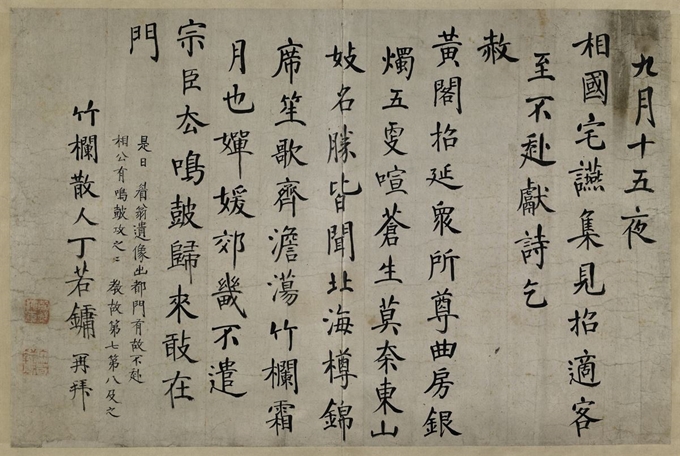 九月十五夜
相國宅讌集見招適客
至不赴獻詩乞
赦
黃閣招延衆所尊曲房銀
燭五雯喧蒼生莫奈東山
妓名勝皆聞北海樽錦
席笙歌齊澹蕩竹欄霜
月也嬋媛郊畿不遣
宗臣去鳴皷歸來敢在
門
是日 翁遺像出都門有故不赴
相公有鳴皷攻之之 敎故第七第八及之
竹欄散人丁若鏞 再拜